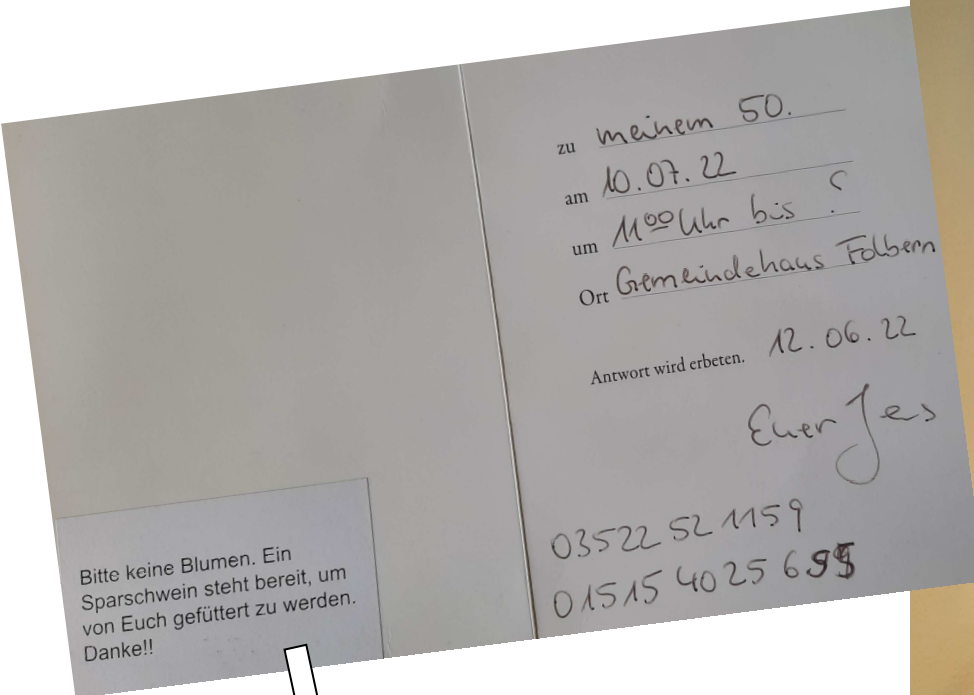 zu meinem 50.
am 10.07.22
um 11⁰⁰ Uhr bis ?
Ort Gemeindehaus Folbern
Antwort wird erbeten. 12.06.22
Euer Jens
03522 52 1159
01515 4025 6
Bitte keine Blumen. Ein
Sparschwein steht bereit, um
von Euch gefüttert zu werden.
Danke!!